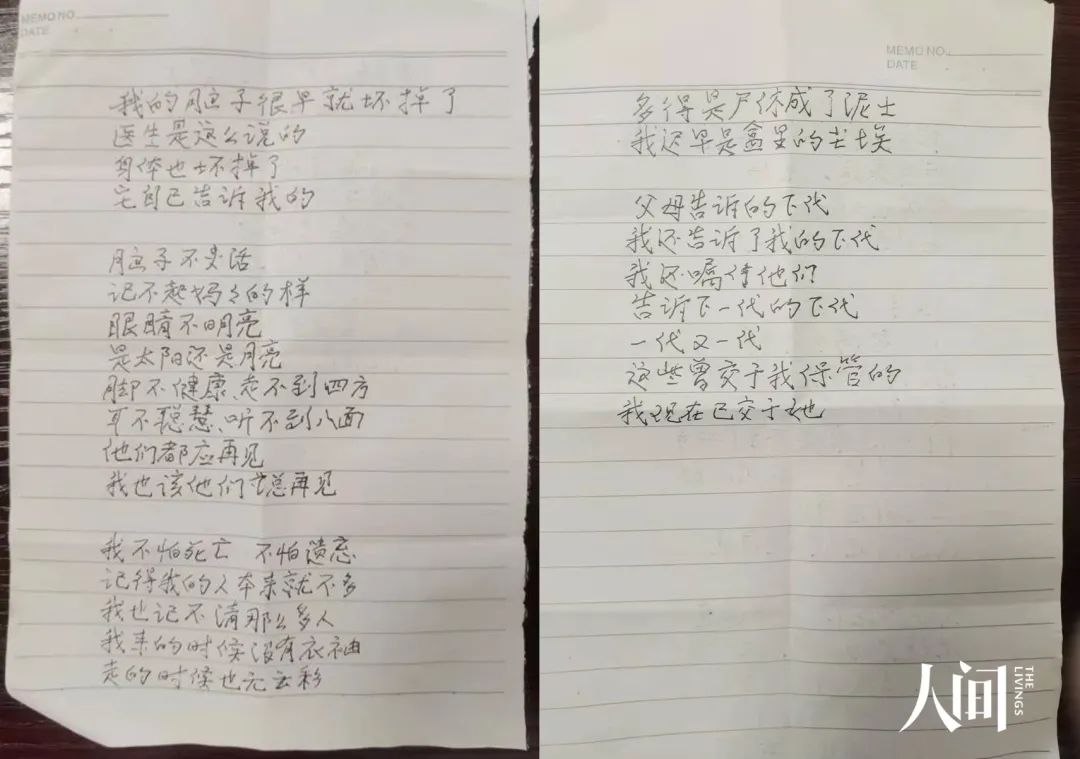 MEMO NO.
DATE
我的脑子很早就坏掉了
医生是这么说的
身体也坏掉了
它自己告诉我的
脑子不灵活
记不起妈々的样
眼睛不明亮
是太阳还是月亮
脚不健康、走不到四方
耳不聪慧、听不到八面
他们都应再见
我也该他们说总再见
我不怕死亡 不怕遗忘
记得我的人本来就不多
我也记不清那么多人
我来的时候没有衣袖
走的时候也无云彩
MEMO NO.
DATE
多得是尸体成了泥土
我迟早是盒里的尘埃
父母告诉的下代
我还告诉了我的下代
我还嘱侍他们
告诉下一代的下代
一代又一代
这些曾交于我保管的
我现在已交于她
人间
THE
LIVINGS